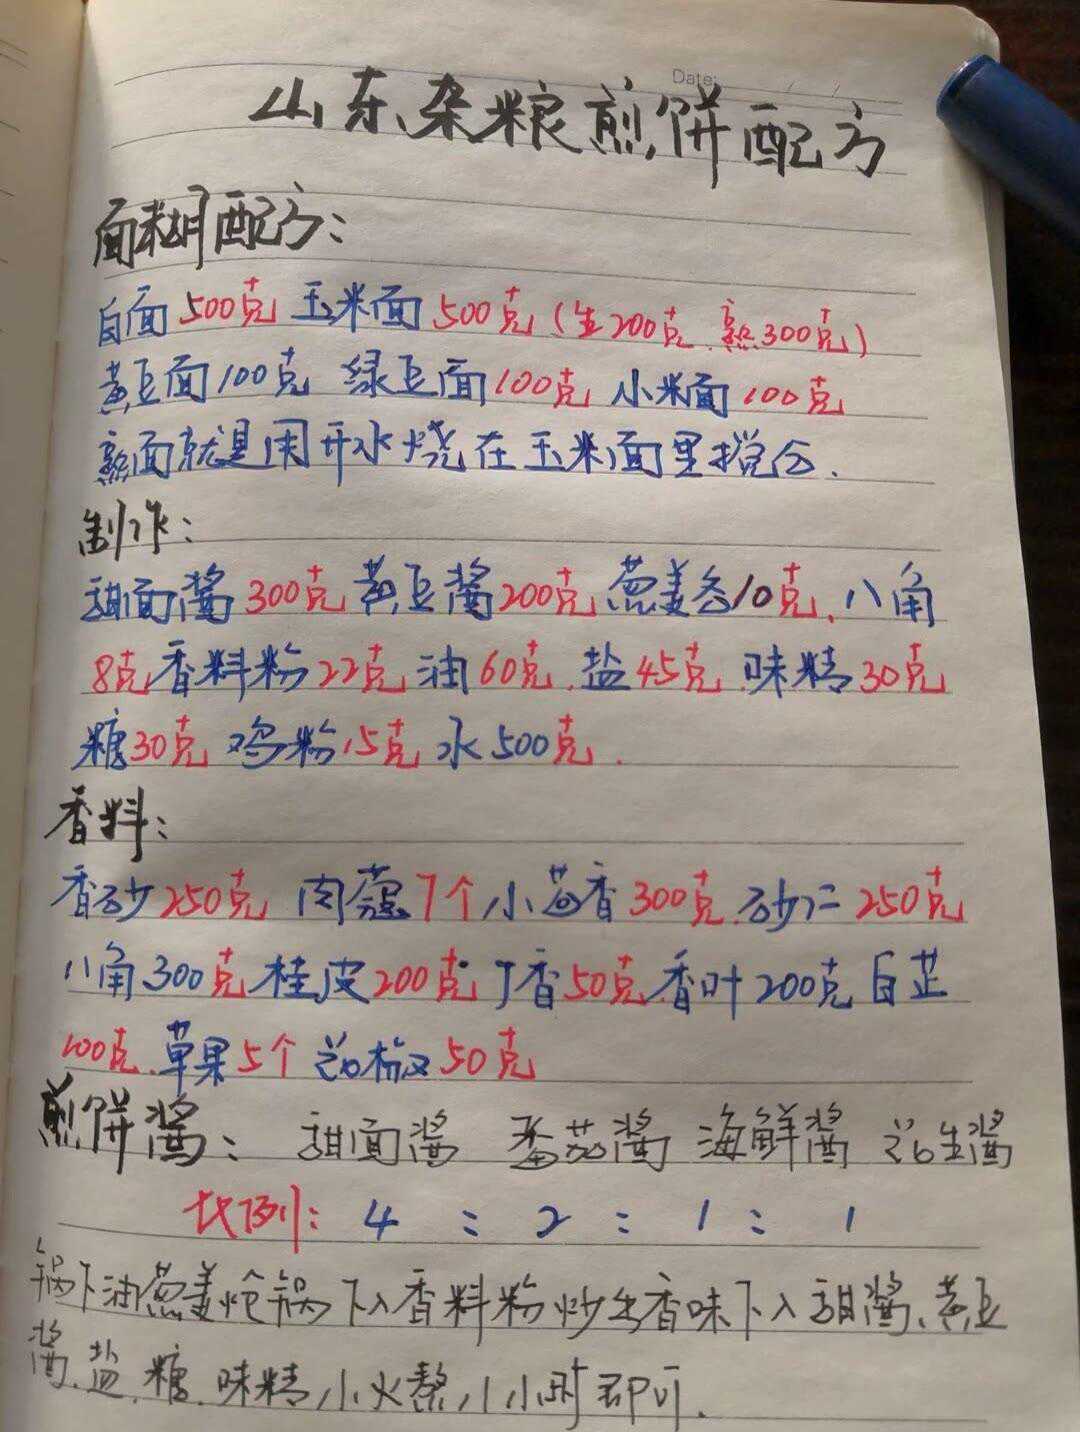 Date:
山东杂粮煎饼配方
面糊配方：
白面500克 玉米面500克(生200克.熟300克)
黄豆面100克 绿豆面100克 小米面100克
熟面就是用开水烧在玉米面里搅匀.
制作：
甜面酱300克黄豆酱200克葱姜各10克.八角
8克香料粉22克油60克.盐45克.味精30克
糖30克鸡粉15克水500克.
香料：
香砂250克 肉蔻7个小茴香300克.砂仁250克
八角300克桂皮200克丁香50克.香叶200克白芷
100克.草果5个 花椒50克
煎饼酱：甜面酱 番茄酱 海鲜酱 花生酱
比例：4：2：1：1
锅下油葱姜炝锅下入香料粉炒出香味下入甜酱、黄豆
酱.盐.糖.味精小火熬1小时即可.